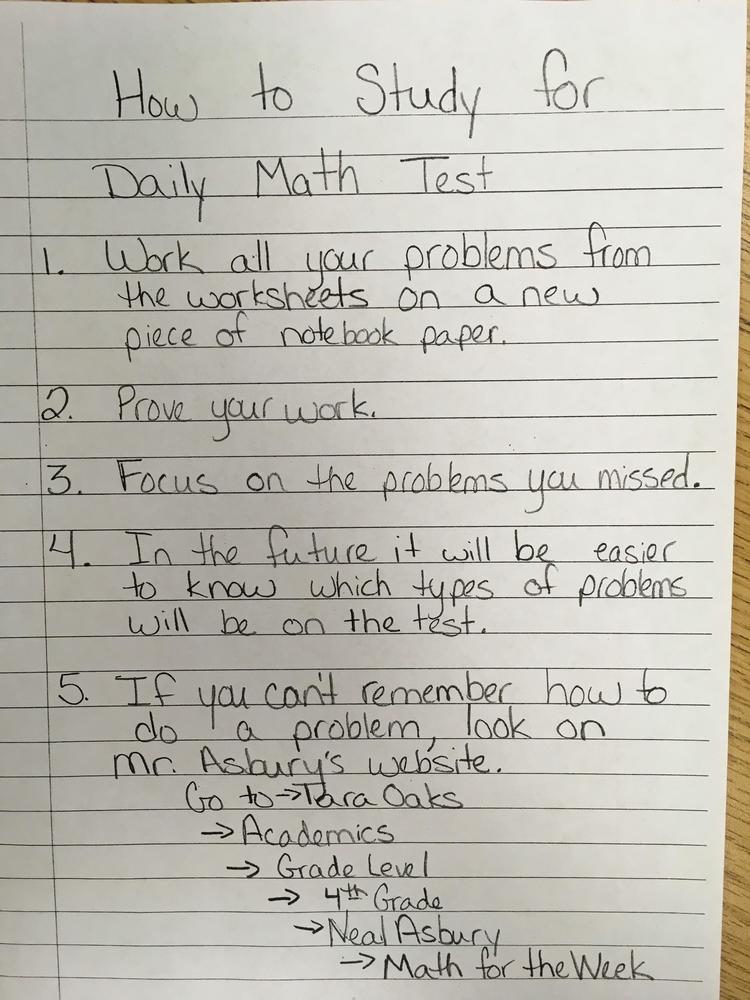 How to Study for
Daily Math Test
1. Work all your problems from
the worksheets on a new
piece of notebook paper.
2. Prove your work.
3. Focus on the problems you missed.
4. In the future it will be easier
to know which types of problems
will be on the test.
5. If you can't remember how to
do a problem, look on
mr. Asbury's website.
Go to → Tara Oaks
→ Academics
→ Grade Level
→ 4th Grade
→ Neal Asbury
→ Math for the Week